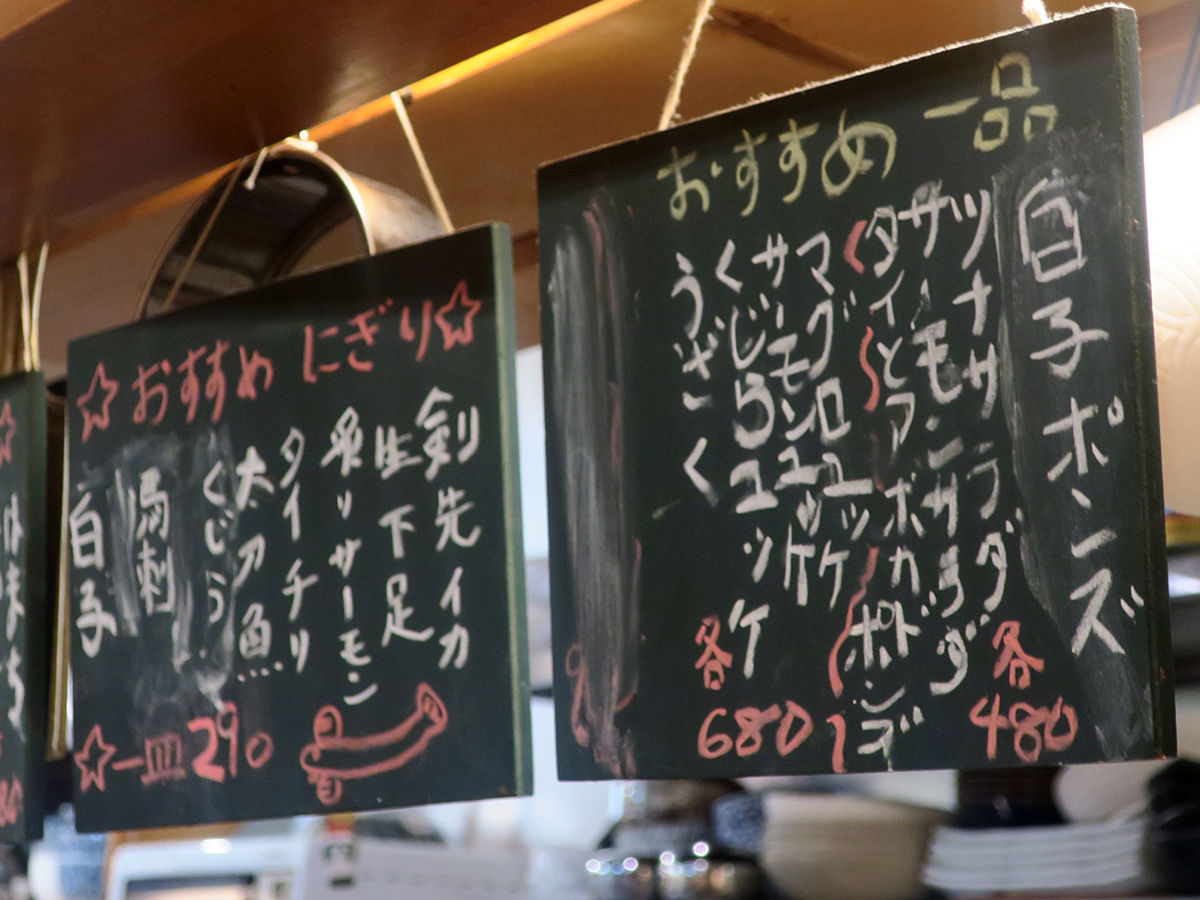 おすすめ一品
白子ポンズ
ツナサラダ
サーモンサラダ
タイとアボカドポンズ
各480
マグロユッケ
サーモンユッケ
くじらユッケ
うざく
各680
☆おすすめにぎり☆
剣先イカ
生下足
炙りサーモン
タイチリ
太刀魚…
くじら
馬刺
白子
☆一皿290